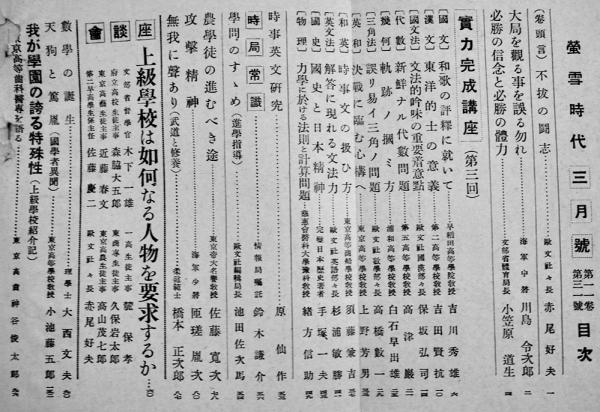 螢雪時代 三月號 第一一卷 第三二號 目次
(卷頭言) 不拔の鬪志 歐文社々長 赤尾好夫
大局を觀る事を誤る勿れ 海軍中將 川島令次郎
必勝の信念と必勝の體力 文部省體育局長 小笠原道生
實力完成講座(第三回)
[國文] 和歌の評釋に就いて 早稻田高等學校教授 吉川秀雄
[漢文] 東洋的士の意義 第一高等學校教授 吉田賢抗
[國文法] 文法的吟味の重要着意點 歐文社國語部々長 保坂弘司
[代數] 新鮮ナル代數問題 第五高等學校教授 高津巖
[幾何] 軌跡ノ摑ミ方 浦和高等學校教授 白石早出雄
[三角法] 誤リ易イ三角ノ問題 歐文社數學部々長 高橋數一
[英和] 決戰に臨む心構へ 東京高等學校教授 上野芳男
[和英] 時事文の扱ひ方 東京高等商船學校教授 須藤兼吉
[英文法] 解答に現れる文法力 歐文社英語部々長 杉浦敏勝
[國史] 國史と日本精神 完璧日本歷史著者 手塚一夫
[物理] 力學に於ける法則と計算問題 慈惠會醫科大學豫科教授 緒方信助
時事英文研究 原仙作
時局常識 情報局囑託 鈴木謙介
學問のすゝめ(進學指導) 歐文社編輯局長 池田佐次馬
農學徒の進むべき途 東京帝大名譽教授 佐藤寬次
攻擊精神 海軍少將 匝瑳胤次
無我に聲あり(武道と修養) 柔道範士 橋本正次郎
座談會 上級學校は如何なる人物を要求するか
文部省督學官 木下一雄
府立高校生徒主事 森脇大五郎
東京高校生徒主事 近藤春文
第二早高學生係主任 佐藤慶二
一高生徒主事 菅保孝
東商專生徒主事 久保岩太郎
東京高農生徒主事 高山茂七郎
歐文社々長 赤尾好夫
數學の誕生 理學士 大西文夫
天狗と篤胤(國學者異聞) 東京高等學校教授 小池藤五郎
我が學園の誇る特殊性(上級學校紹介記)
東京高等齒科醫專を語る 東京高齒 神谷俊太郎